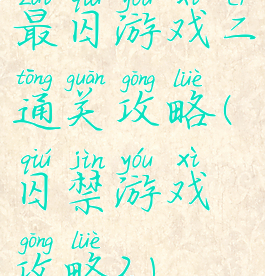 最囚游戏二
tōng guān gōng lüè
通关攻略(
qiú jìn yóu xì
囚禁游戏
gōng lüè
攻略2)